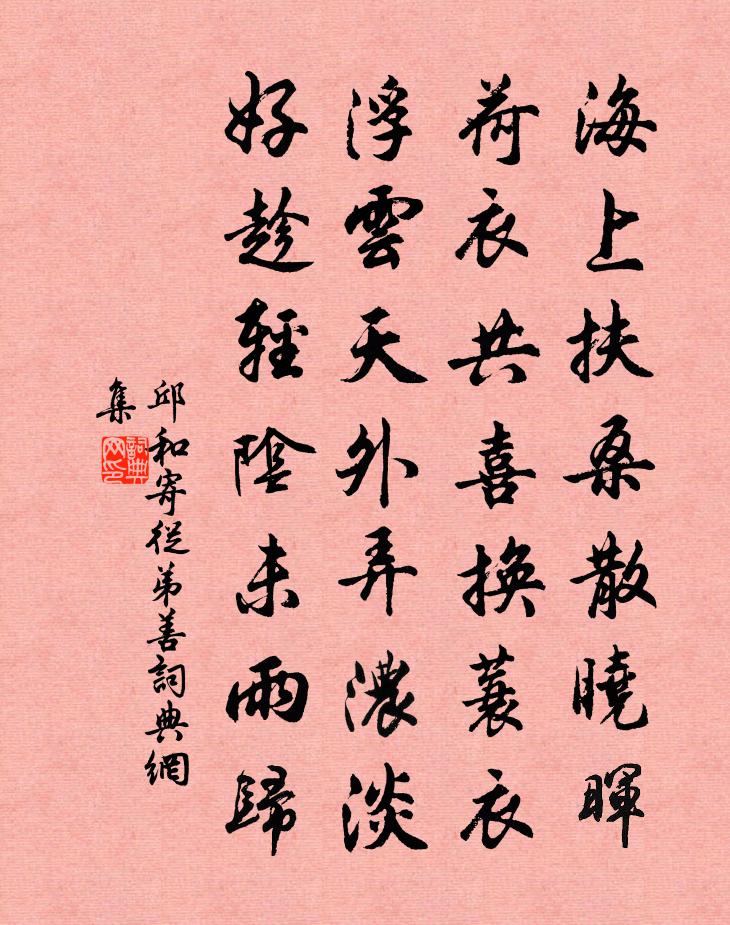 海上扶桑散曉暉
荷衣共喜換蓑衣
浮雲天外弄濃淡
好趁輕陰未雨歸
邱和寄從弟善詞典網
集
詞典網印